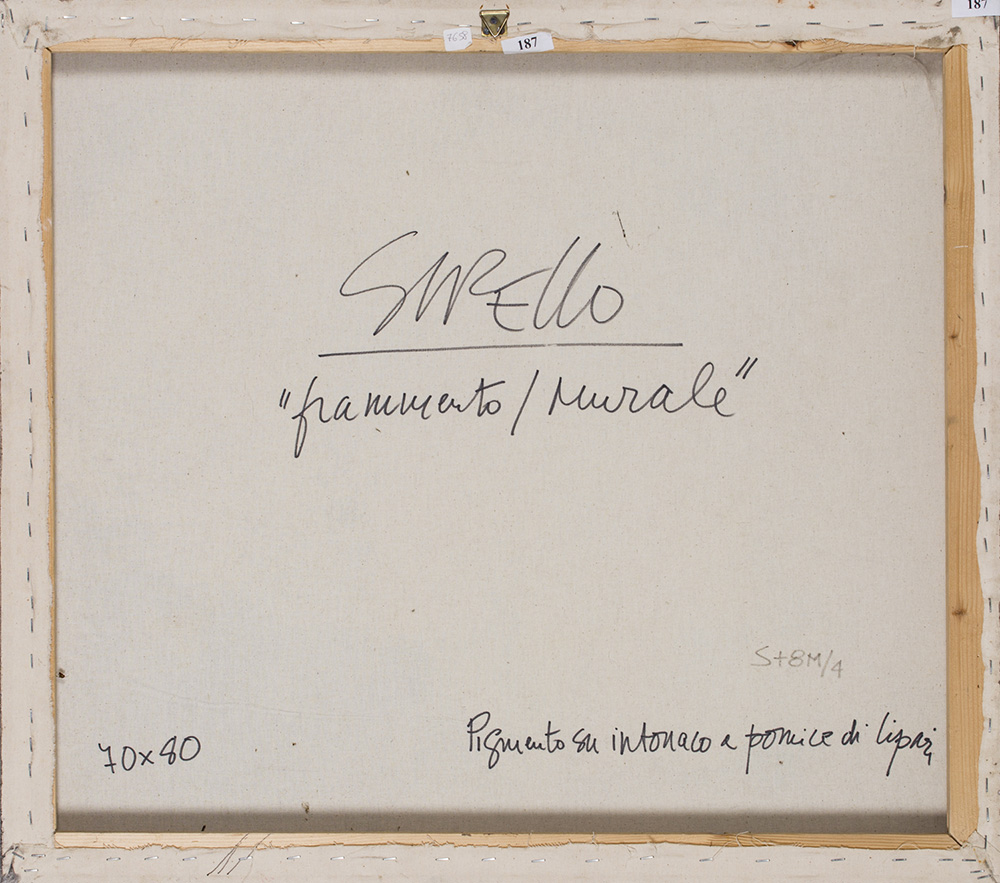 187
7658
187
SIRELLO
"frammento/Murale"
S+8M/4
70x80
Pigmento su intonaco a pomice di lipari